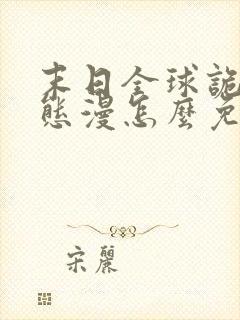 末日全球詭
態漫怎麼免
宋麗